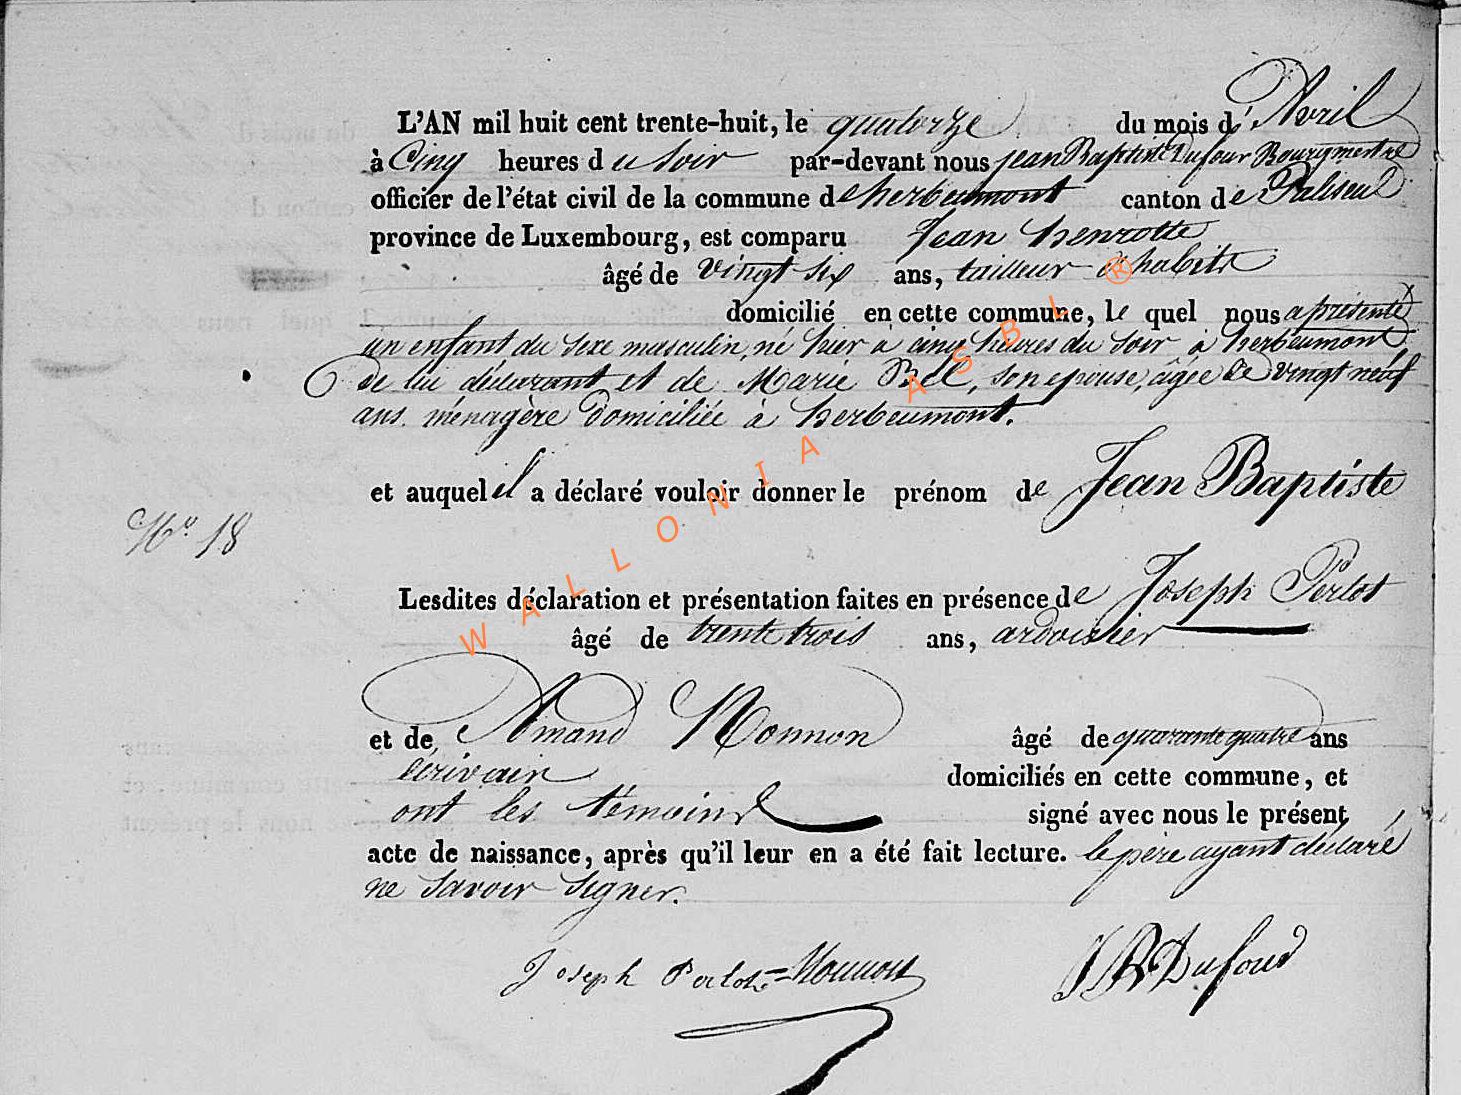 L'AN mil huit cent trente-huit, le quatorze du mois d'Avril
à Cinq heures du Soir par-devant nous jean Baptiste Dufour Bourgmestre
officier de l'état civil de la commune de herbeumont canton de Paliseul
province de Luxembourg, est comparu Jean henrotte
âgé de vingt six ans, tailleur d'habits
domicilié en cette commune, le quel nous a présenté
un enfant du sexe masculin, né hier à cinq heures du Soir à herbeumont
de lui déclarant et de Marie Bell, son epouse, âgée de vingt neuf
ans. ménagère domiciliée à herbeumont.
et auquel il a déclaré vouloir donner le prénom de Jean Baptiste
No. 18
Lesdites déclaration et présentation faites en présence de Joseph Perlot
âgé de trente trois ans, ardoisier
et de Amand Monnon âgé de quarante quatre ans
écrivain domiciliés en cette commune, et
ont les témoins signé avec nous le présent
acte de naissance, après qu'il leur en a été fait lecture. le père ayant déclaré
ne Savoir Signer.
Joseph Perlot = Monnon JB Dufour
WALLONIA ASBL ®